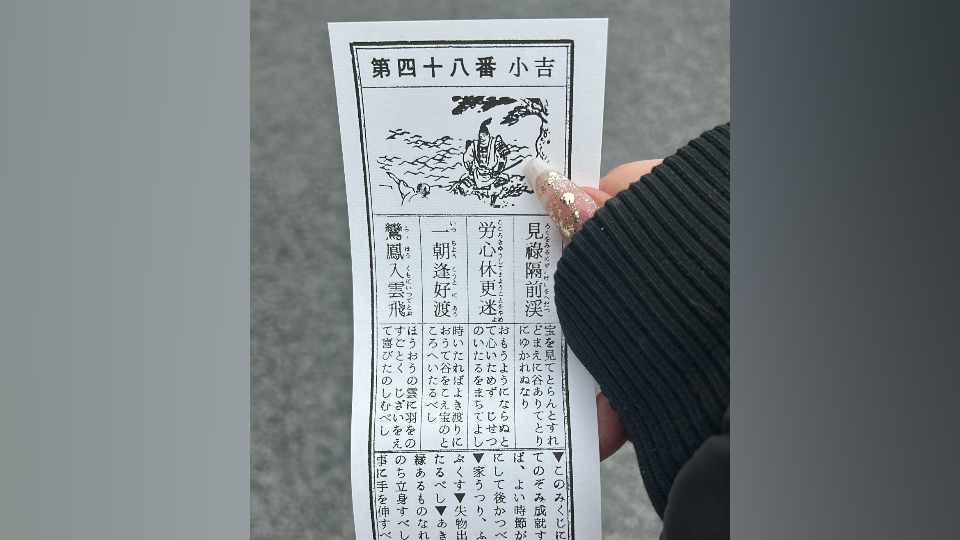 第四十八番 小吉
見祿隔前渓
労心休更迷
一朝逢好渡
鸞鳳入雲飛
宝を見てとらんとすれ
どまえに谷ありてとり
にゆかれぬなり
おもうようにならぬと
て心いためず じせつ
のいたるをまちてよし
時いたればよき渡りに
おうて谷をこえ宝のと
ころへいたるべし
ほうおうの雲に羽をの
すごとく じざいをえ
て喜びたのしむべし
▼このみくじに
てのぞみ成就す
ば、よい時節が
にして後かつべ
▼家うつり、ふ
ぷくす▼失物出
たるべし▼あき
縁あるものなれ
のち立身すべし
事に手を伸すべ